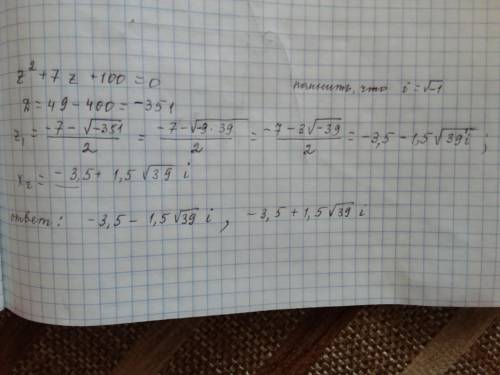 z² + 7z + 100 = 0
помнить, что i = √-1
D = 49 - 400 = -351
z₁ = (-7 - √-351)/2 = (-7 - √-9·39)/2 = (-7 - 3√-39)/2 = -3,5 - 1,5√39 i ;
x₂ = -3,5 + 1,5 √39 i
ответ: -3,5 - 1,5√39 i , -3,5 + 1,5√39 i